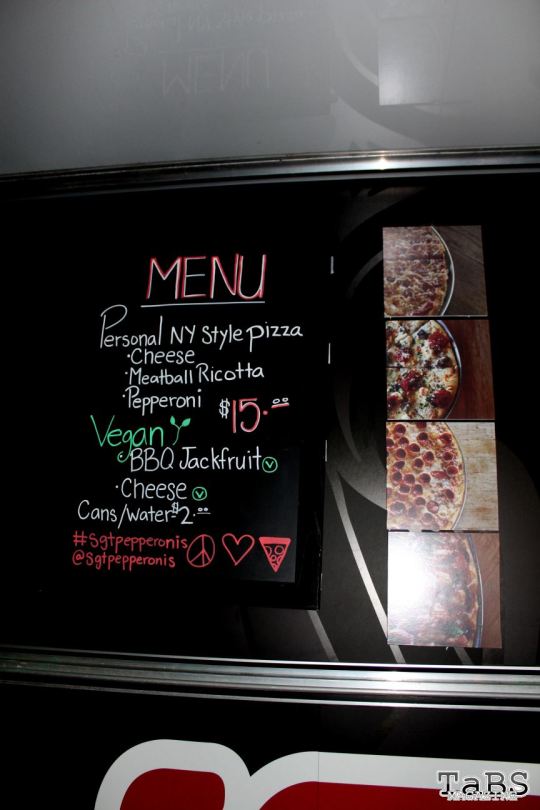 MENU
Personal NY Style Pizza
·Cheese
·Meatball Ricotta
·Pepperoni
$15.00
Vegan
·BBQ Jackfruit V
·Cheese V
Cans/Water $2.00
#Sgtpepperonis
@Sgtpepperonis
TaBS